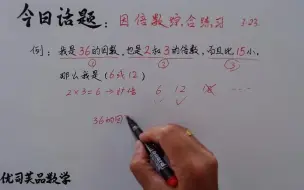 今日话题：因倍数综合练习 3.23
例：我是36的因数，也是2和3的倍数，而且比15小，
① ② ③
那么我是（6或12）
2×3=6→什倍 6 12 ……
36的因
优司芙品数学